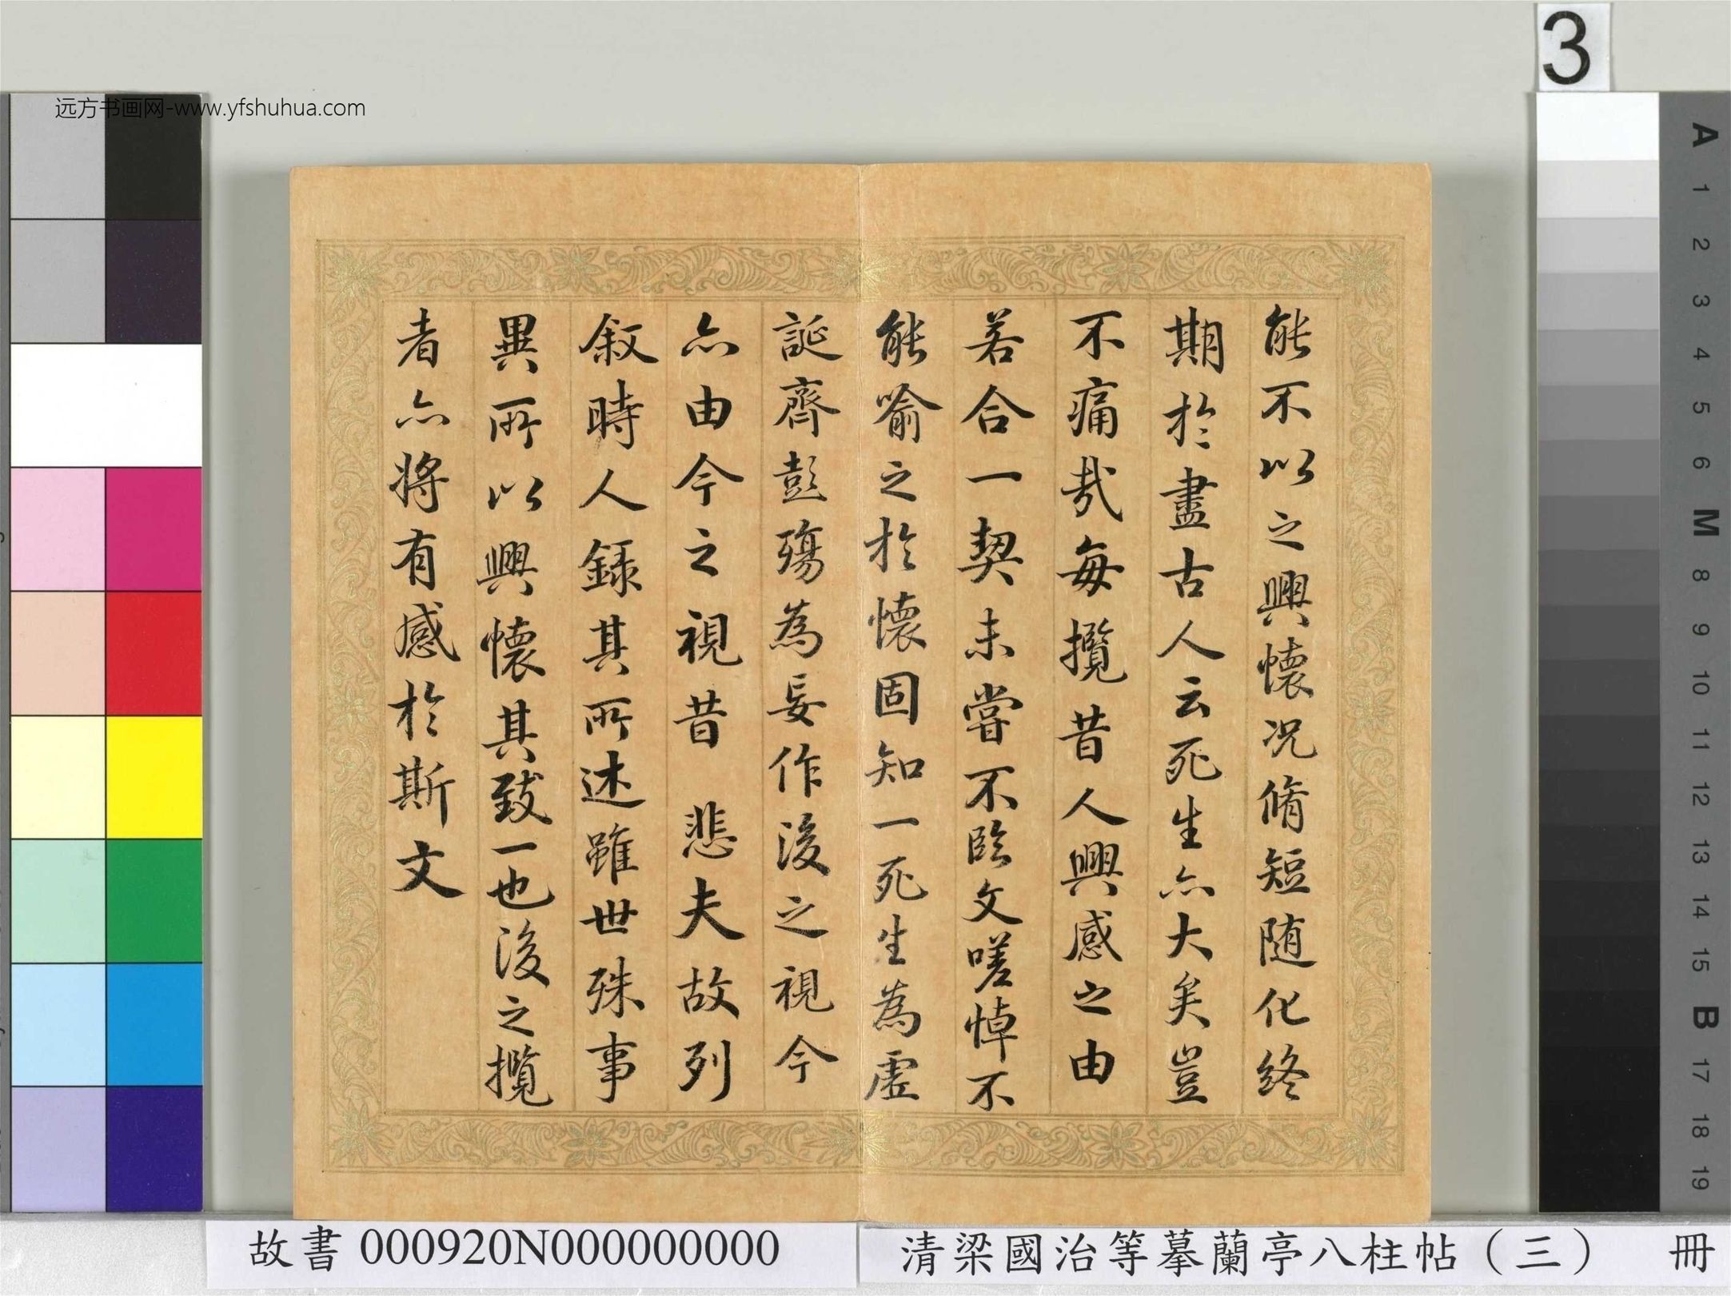 远方书画网-www.yfshuhua.com
3
能不以之興懷况脩短随化終
期於盡古人云死生亦大矣豈
不痛哉每攬昔人興感之由
若合一契未嘗不臨文嗟悼不
能喻之於懷固知一死生為虚
誕齊彭殤為妄作後之視今
亦由今之視昔 悲夫故列
叙時人録其所述雖世殊事
異所以興懷其致一也後之攬
者亦将有感於斯文
A
1
2
3
4
5
6
M
8
9
10
11
12
13
14
15
B
17
18
19
故書 000920N000000000
清梁國治等摹蘭亭八柱帖（三） 冊